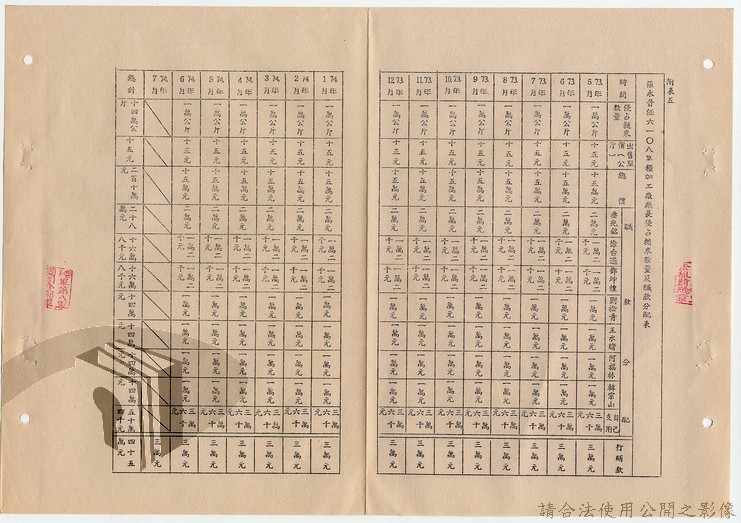 附表五
張永晉任六一〇八軍糧加工廠廠長侵占糙米數量及贓款分配表
時間 侵占糙米數量 出售單價(公斤) 總價 贓款分配 鄭坤煌 王水晴 何福林 自己支用
73年5月 一萬公斤 十五元 十五萬元 二萬元 一萬二千元 一萬二千元 一萬元 一萬元 一萬元 一萬元 三萬六千元 三萬元
73年6月 一萬公斤 十五元 十五萬元 二萬元 一萬二千元 一萬二千元 一萬元 一萬元 一萬元 一萬元 三萬六千元 三萬元
73年7月 一萬公斤 十五元 十五萬元 二萬元 一萬二千元 一萬二千元 一萬元 一萬元 一萬元 一萬元 三萬六千元 三萬元
73年8月 一萬公斤 十五元 十五萬元 二萬元 一萬二千元 一萬二千元 一萬元 一萬元 一萬元 一萬元 三萬六千元 三萬元
73年9月 一萬公斤 十五元 十五萬元 二萬元 一萬二千元 一萬二千元 一萬元 一萬元 一萬元 一萬元 三萬六千元 三萬元
73年10月 一萬公斤 十五元 十五萬元 二萬元 一萬二千元 一萬二千元 一萬元 一萬元 一萬元 一萬元 三萬六千元 三萬元
73年11月 一萬公斤 十五元 十五萬元 二萬元 一萬二千元 一萬二千元 一萬元 一萬元 一萬元 一萬元 三萬六千元 三萬元
73年12月 一萬公斤 十五元 十五萬元 二萬元 一萬二千元 一萬二千元 一萬元 一萬元 一萬元 一萬元 三萬六千元 三萬元
74年1月 一萬公斤 十五元 十五萬元 二萬元 一萬二千元 一萬二千元 一萬元 一萬元 一萬元 一萬元 三萬六千元 三萬元
74年2月 一萬公斤 十五元 十五萬元 二萬元 一萬二千元 一萬二千元 一萬元 一萬元 一萬元 一萬元 三萬六千元 三萬元
74年3月 一萬公斤 十五元 十五萬元 二萬元 一萬二千元 一萬二千元 一萬元 一萬元 一萬元 一萬元 三萬六千元 三萬元
74年4月 一萬公斤 十五元 十五萬元 二萬元 一萬二千元 一萬二千元 一萬元 一萬元 一萬元 一萬元 三萬六千元 三萬元
74年5月 一萬公斤 十五元 十五萬元 二萬元 一萬二千元 一萬二千元 一萬元 一萬元 一萬元 一萬元 三萬六千元 三萬元
74年6月 一萬公斤 十五元 十五萬元 二萬元 一萬二千元 一萬二千元 一萬元 一萬元 一萬元 一萬元 三萬六千元 三萬元
74年7月
總計 十四萬公斤 十五元 二百十萬元 二十八萬元 十六萬八千元 十六萬八千元 十四萬元 十四萬元 十四萬元 十四萬元 五十萬四千元 四十五萬元
請合法使用公開之影像